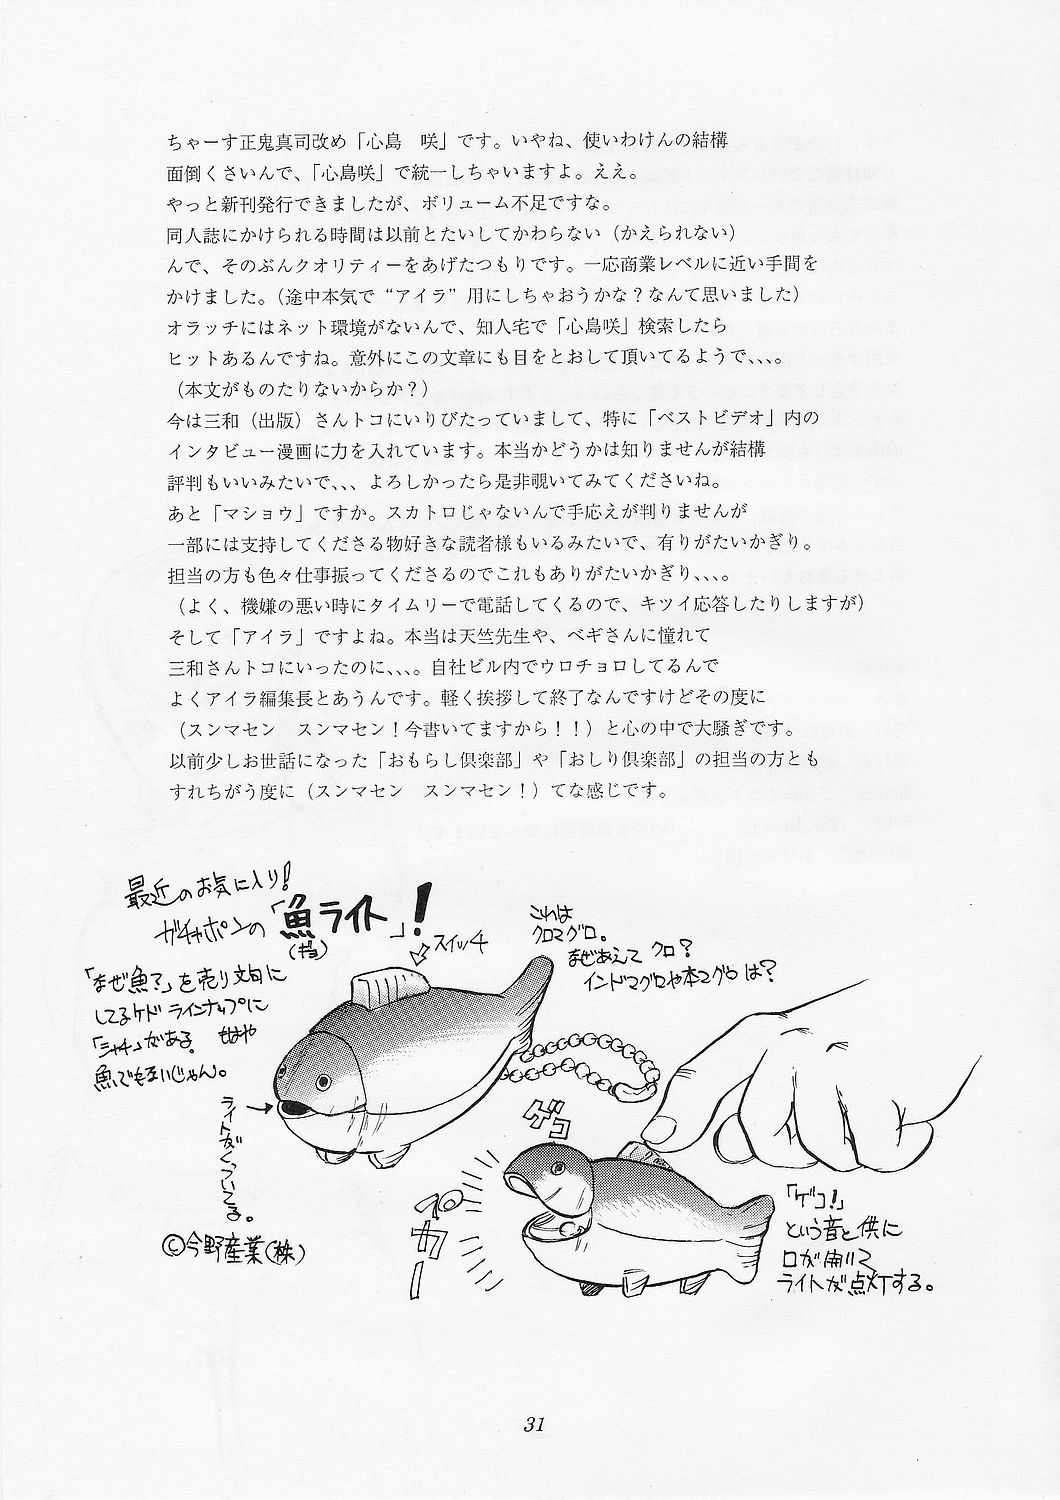 ちゃーす正鬼真司改め「心島　咲」です。いやね、使いわけんの結構
面倒くさいんで、「心島咲」で統一しちゃいますよ。ええ。
やっと新刊発行できましたが、ボリューム不足ですな。
同人誌にかけられる時間は以前とたいしてかわらない（かえられない）
んで、そのぶんクオリティーをあげたつもりです。一応商業レベルに近い手間を
かけました。（途中本気で“アイラ”用にしちゃおうかな？なんて思いました）
オラッチにはネット環境がないんで、知人宅で「心島咲」検索したら
ヒットあるんですね。意外にこの文章にも目をとおして頂いてるようで、、、。
（本文がものたりないからか？）
今は三和（出版）さんトコにいりびたっていまして、特に「ベストビデオ」内の
インタビュー漫画に力を入れています。本当かどうかは知りませんが結構
評判もいいみたいで、、、よろしかったら是非覗いてみてくださいね。
あと「マショウ」ですか。スカトロじゃないんで手応えが判りませんが
一部には支持してくださる物好きな読者様もいるみたいで、有りがたいかぎり。
担当の方も色々仕事振ってくださるのでこれもありがたいかぎり、、、。
（よく、機嫌の悪い時にタイムリーで電話してくるので、キツイ応答したりしますが）
そして「アイラ」ですよね。本当は天竺先生や、ベギさんに憧れて
三和さんトコにいったのに、、、。自社ビル内でウロチョロしてるんで
よくアイラ編集長とあうんです。軽く挨拶して終了なんですけどその度に
（スンマセン　スンマセン！今書いてますから！！）と心の中で大騒ぎです。
以前少しお世話になった「おもらし倶楽部」や「おしり倶楽部」の担当の方とも
すれちがう度に（スンマセン　スンマセン！）てな感じです。
最近のお気に入り！
ガチャポンの「魚ライト」！
(ギョ)
スイッチ
これは
クロマグロ。
なぜあえて クロ？
インドマグロや本マグロは？
「なぜ魚？」を売り文句に
してるケド ラインナップに
「シャチ」がある。もはや
魚でもないじゃん。
ライトがくっついてる。
ゲコ
「ゲコ！」
という音と供に
口が開いて
ライトが点灯する。
©今野産業(株)
31